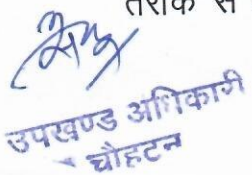 तरीके से
उपखण्ड अधिकारी
चौहटन